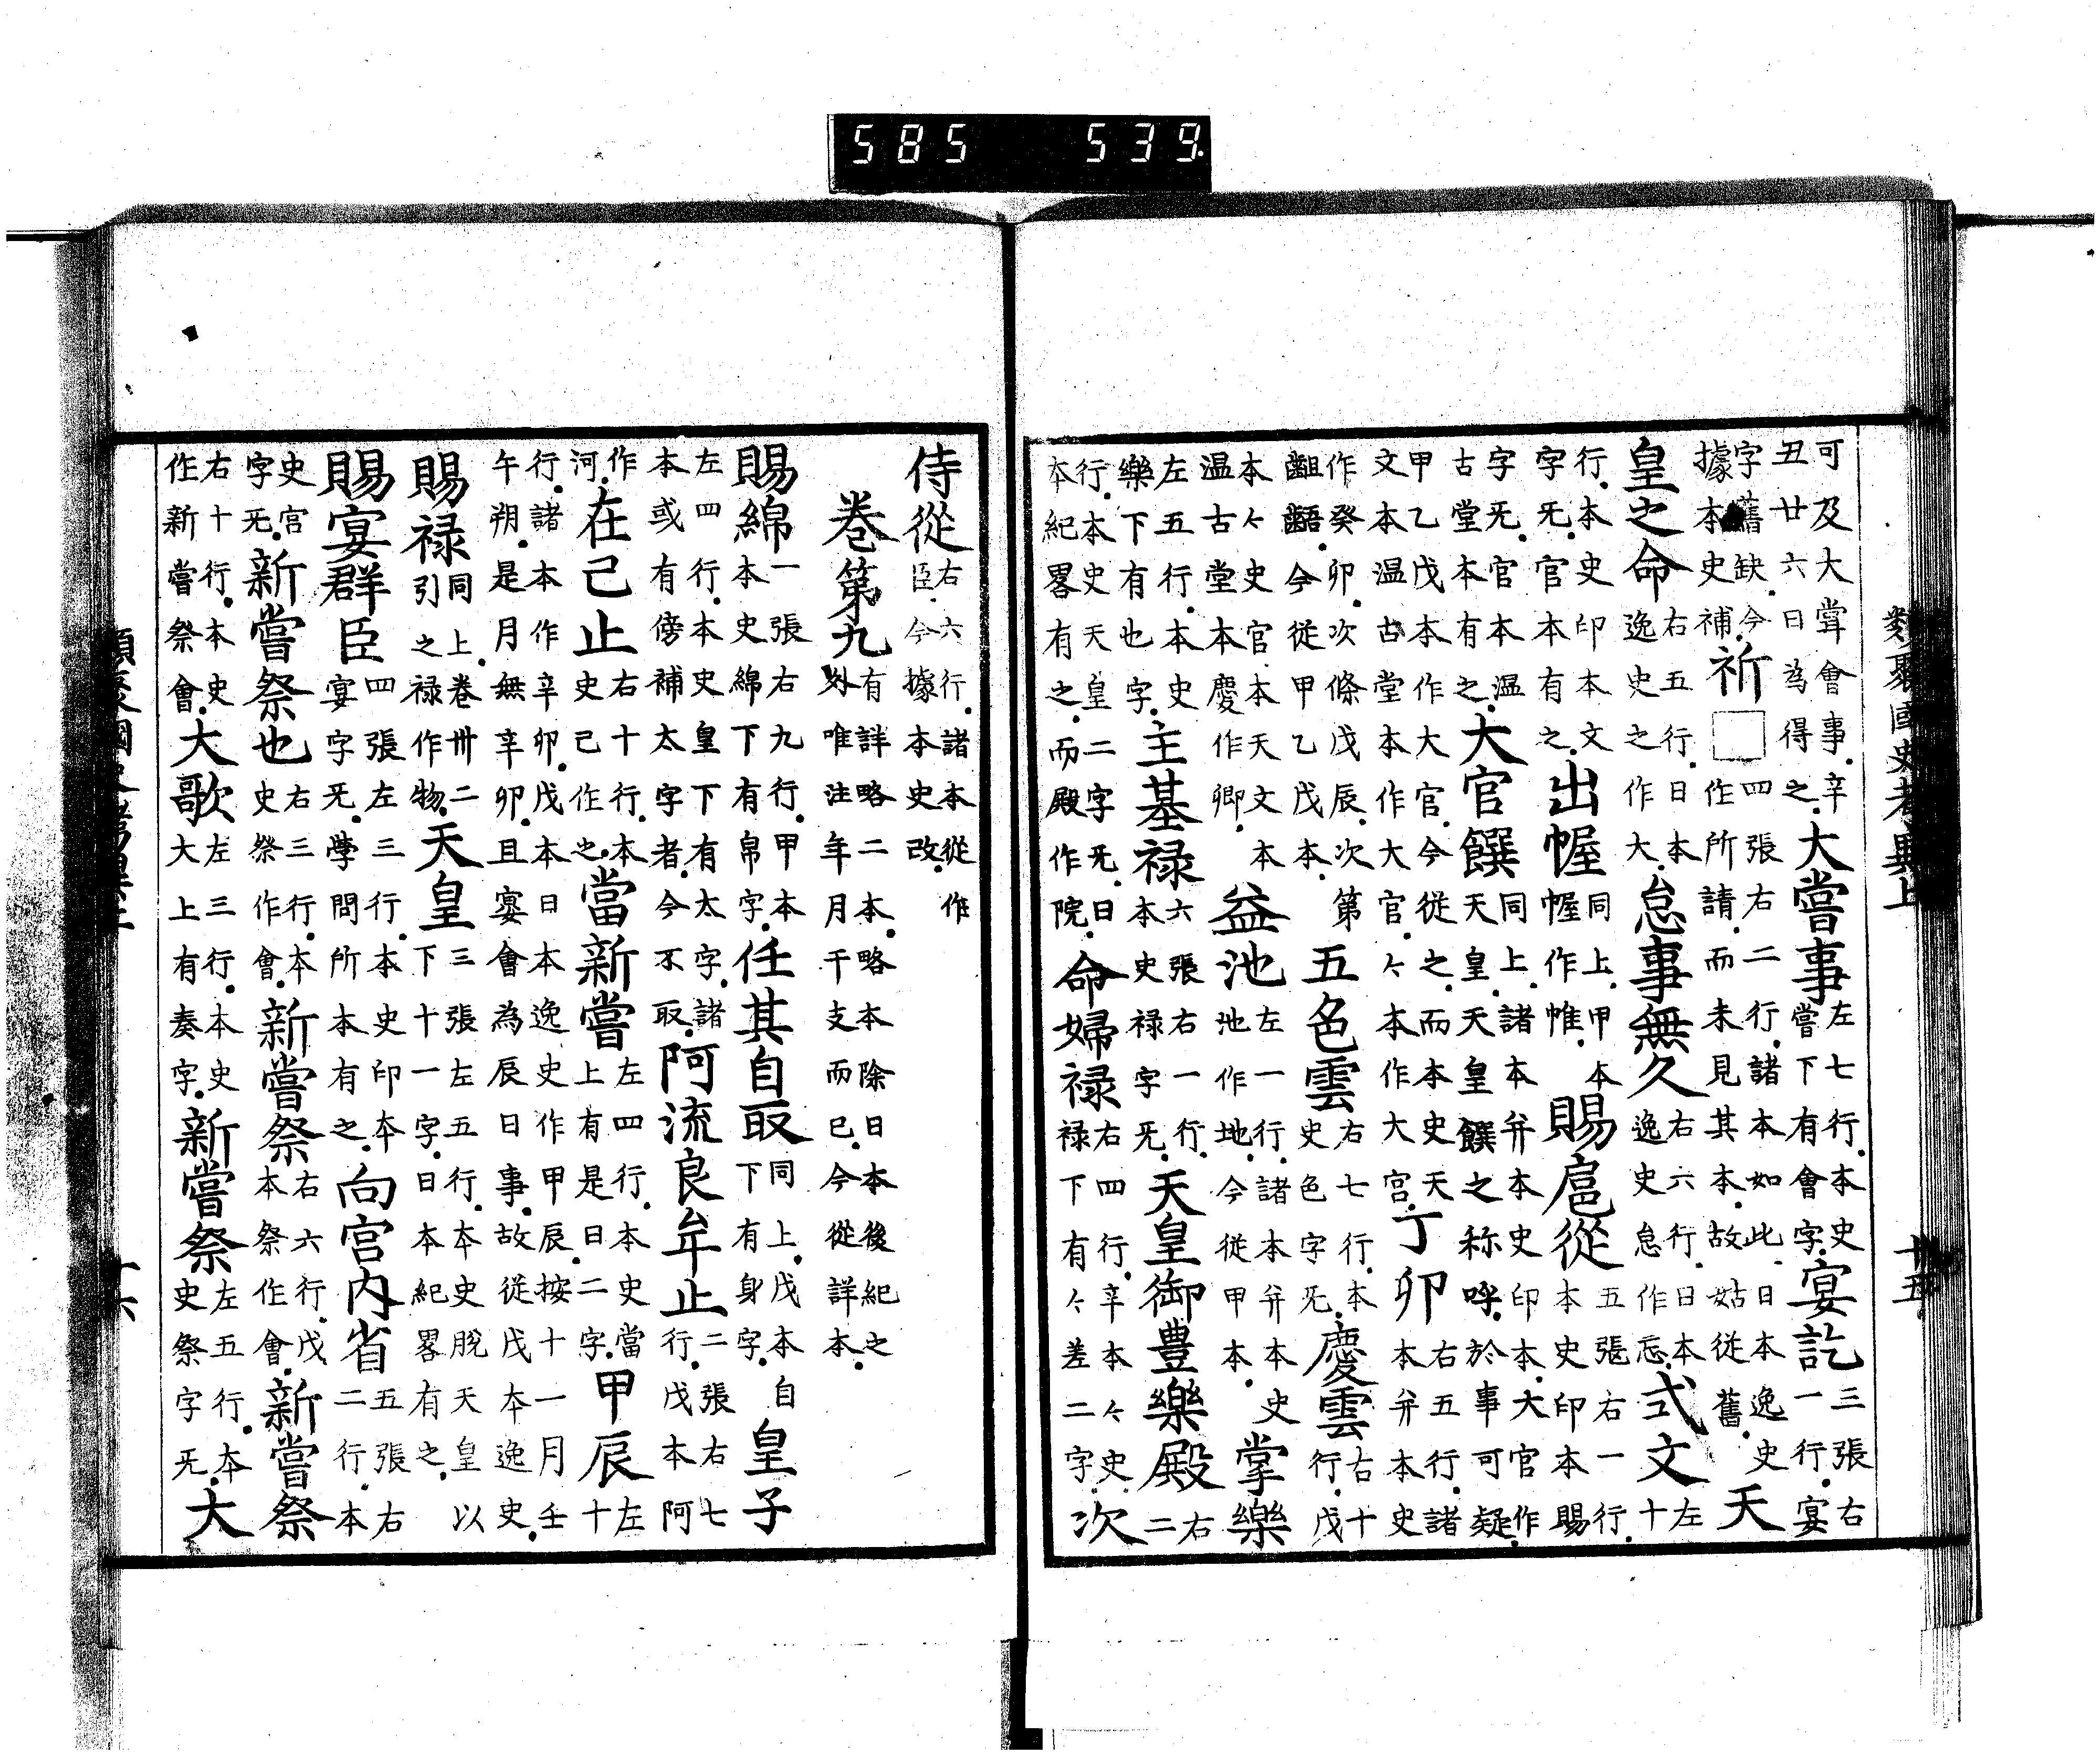 類聚國史考異上 十五
可及大甞會事辛丑廿六日為得之大嘗事左七行本史嘗下有會字宴訖三張右一行宴
字舊缺今據本史補祈□四張右二行諸本如此日本逸史作所請而未見其本故姑從舊天
皇之命右五行日本逸史之作大怠事無久右六行日本逸史怠作忘式文左十
行本史印本文字无官本有之出幄同上甲本幄作帷賜扈從五張右一行本史印本賜
字无官本温古堂本有之大官饌同上諸本并本史印本大官作天皇天皇饌之称呼於事可疑
甲乙戊本作大官今從之而本史天文本温古堂本作大官々本作大宮丁卯右五行諸本并本史
作癸卯次條戊辰次第齟齬今從甲乙戊本五色雲右七行本史色字无慶雲右十行戊
本々史官本天文本温古堂本慶作卿益池左一行諸本并本史池作地今從甲本掌樂
左五行本史樂下有也字主基禄六張右一行本史禄字无天皇御豊樂殿右二
行本史天皇二字无日本紀畧有之而殿作院命婦禄右四行辛本々史禄下有々差二字次
侍從右六行諸本從作臣今據本史改
卷第九有詳略二本略本除日本後紀之外唯注年月干支而已今從詳本
賜綿一張右九行甲本本史綿下有帛字任其自取同上戊本自下有身字皇子
左四行本史皇下有太字諸本或有傍補太字者今不取阿流良牟止二張右七行戊本阿
作河在己止右十行本史己作之當新嘗左四行本史當上有是日二字甲辰左十
行諸本作辛卯戊本日本逸史作甲辰按十一月壬午朔是月無辛卯且宴會為辰日事故從戊本逸史
賜禄同上卷卅二引之禄作物天皇三張左五行本史脫天皇以下十一字日本紀畧有之
賜宴群臣四張左三行本史印本宴字无學問所本有之向宮内省五張右二行本
史宮字无新嘗祭也右三行本史祭作會新嘗祭右六行戊本祭作會新嘗祭
右十行本史作新嘗祭會大歌左三行本史大上有奏字新嘗祭左五行本史祭字无大